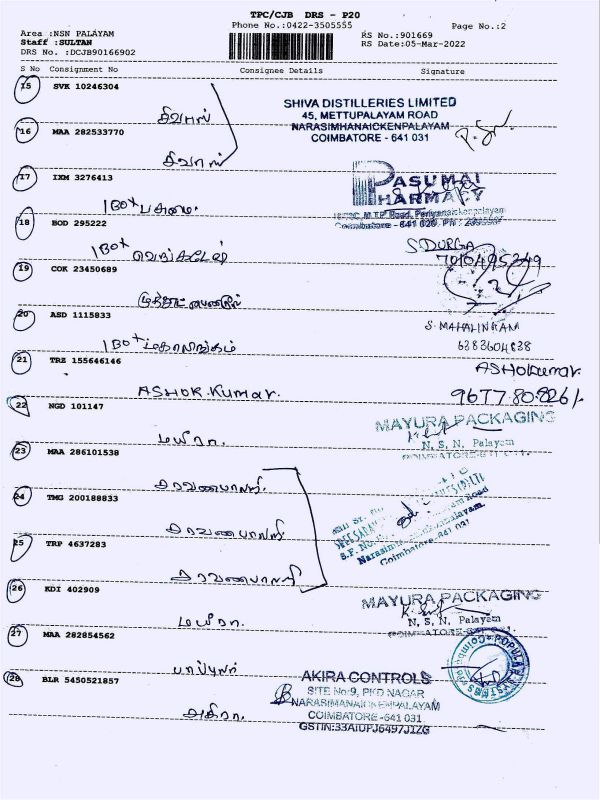 TPC/CJB DRS - P20
Phone No.:0422-3505555
Page No.:2
Area :NSN PALAYAM
Staff :SULTAN
DRS No. :DCJB90166902
RS No.:901669
RS Date:05-Mar-2022
S No Consignment No Consignee Details Signature
15 SVK 10246304
சிவாஸ்
SHIVA DISTILLERIES LIMITED
45, METTUPALAYAM ROAD
NARASIMHANAICKENPALAYAM
COIMBATORE - 641 031
16 MAA 282533770
சிவாஸ்
17 IXM 3276413
1 BOX பசுமை.
PASUMAI
PHARMACY
M.T.P. Road, Periyanaickenpalayam
Coimbatore - 641 020
18 BOD 295222
1 BOX வெங்கடேஷ்
S.DURGA
19 COK 23450689
20 ASD 1115833
1 BOX மகாலிங்கம்
S. MAHALINGAM
6383604838
21 TRZ 155646146
ASHOK.Kumar.
ASHOKumar.
22 NGD 101147
மயூரா.
MAYURA PACKAGING
N. S. N. Palayam
23 MAA 286101538
சரவணபாலாஜி.
24 TMG 200188833
சரவணபாலாஜி
25 TRP 4637283
சரவணபாலாஜி
Coimbatore-641 031
26 KDI 402909
மயூரா.
MAYURA PACKAGING
N. S. N. Palayam
27 MAA 282854562
பாப்புலர்
28 BLR 5450521857
அகிரா.
AKIRA CONTROLS
SITE No:9, PKD NAGAR
NARASIMANAICKENPALAYAM
COIMBATORE-641 031
GSTIN:33AIUPJ6497J1ZG